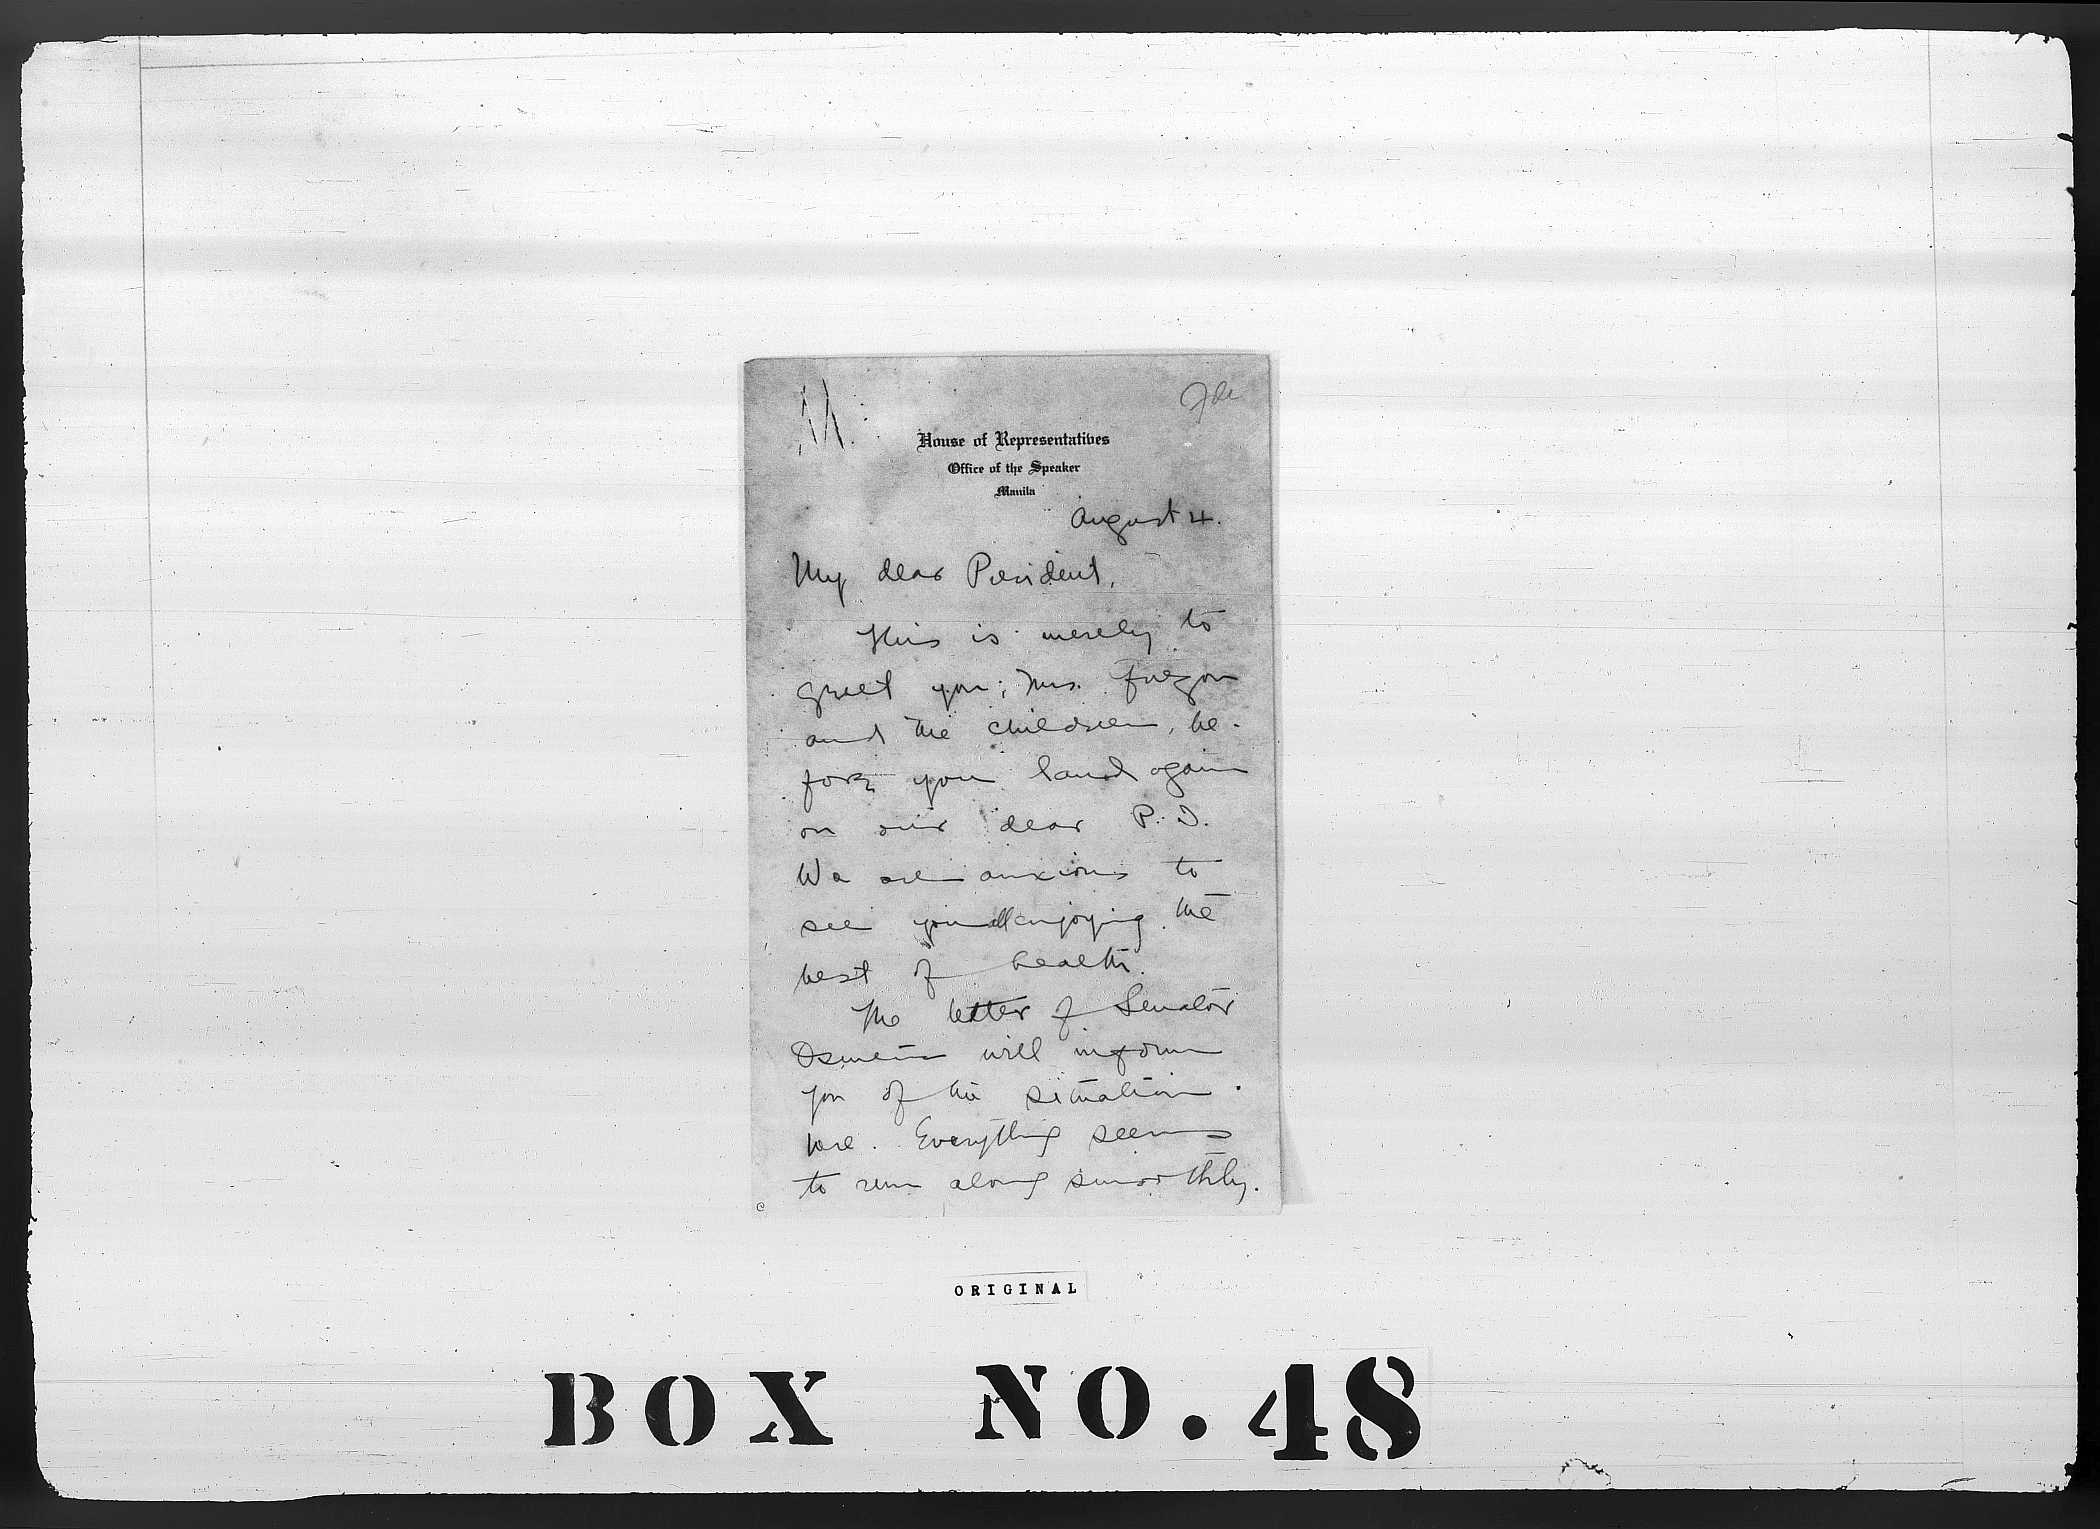 House of Representatives
Office of the Speaker
Manila
August 4.
My dear President,
This is merely to
greet you, Mrs. Quezon
and the children, be-
fore you land again
on our dear P. I.
We are anxious to
see you all enjoying the
best of health.
The letter of Senator
Osmeña will inform
you of the situation
here. Everything seems
to run along smoothly.
ORIGINAL
BOX NO. 48